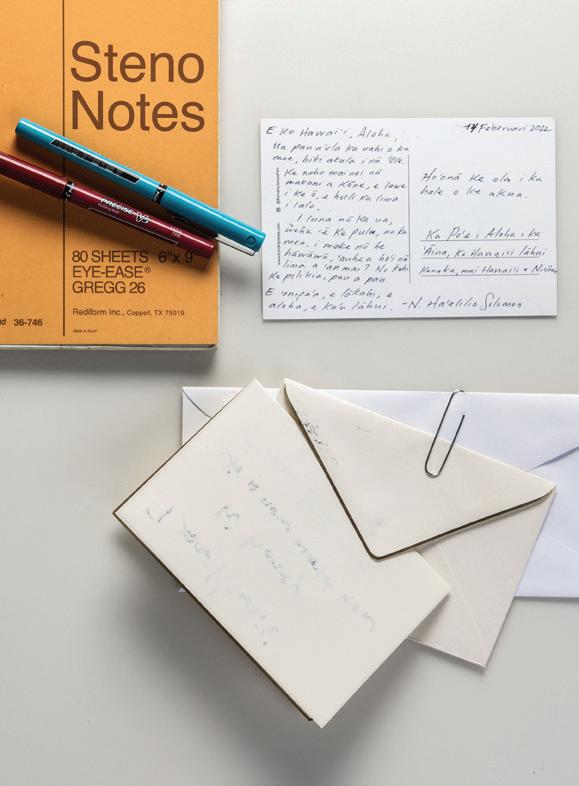 Steno
Notes
80 SHEETS 6"x 9"
EYE-EASE®
GREGG 26
36-746
Rediform Inc., Coppell, TX 75019
Made in Brazil
PRECISE V5
14 Februari 2022
E Ko Hawaiʻi, Aloha,
Ua pau aʻela ka wahi o ka
moe, hiki akula i nā ʻōle.
Ke neho mai nei nā
makani a Kāne, e lawe
i ke ē, e huli ka lima
i lalo.
I luna nō ka ua,
wehe ʻē ke pula, no ka
mea, i make nō he
hāwāwā, ʻauhea hoʻi nā
lima a ʻan mai? No kahi
ke pilikia, pau a pau.
E ʻonipaʻa, e lōkahi, e
aloha, e kuʻu lāhui.
Hoʻonā ke ola i ka
hale o ke akua.
Ka Poʻe i Aloha i ka
ʻĀina, Ko Hawaiʻi lāhui
Kanaka, mai Hawaiʻi a Niʻihau
-N. Haʻalilio Solomon